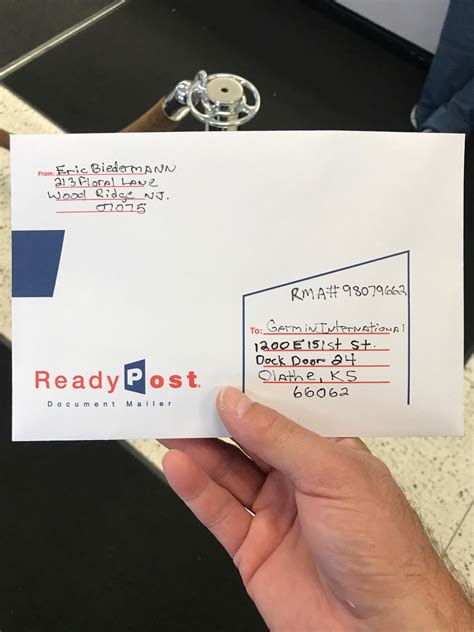 From: Eric Biedermann
213 Floral Lane
Wood Ridge NJ.
07075
RMA# 98079662
To: Garmin International
1200 E 151st St.
Dock Door 24
Olathe, KS
66062
ReadyPost.
Document Mailer